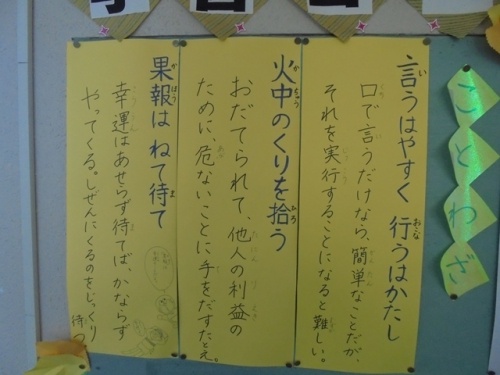 ことわざ
言うはやすく 行うはかたし
口で言うだけなら、簡単なことだが、
それを実行することになると難しい。
火中のくりを拾う
おだてられて、他人の利益の
ために、危ないことに手をだすたとえ。
果報は ねて待て
幸運はあせらず待てば、かならず
やってくる。しぜんにくるのをじっくり
待つ